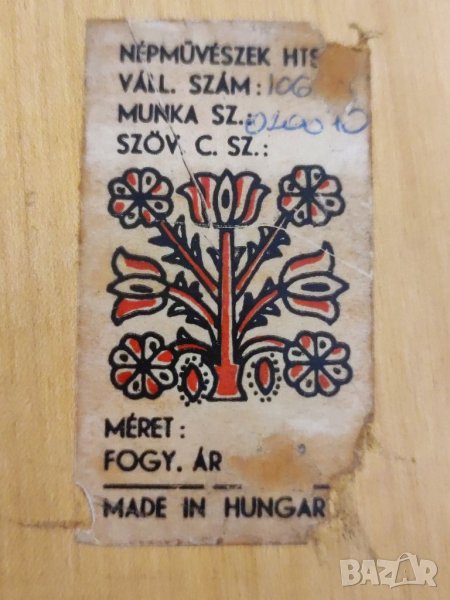 NÉPMŰVÉSZEK HTS
VÁLL. SZÁM: 106
MUNKA SZ.:
SZÖV. C. SZ.:
MÉRET:
FOGY. ÁR
MADE IN HUNGAR
BAZAR